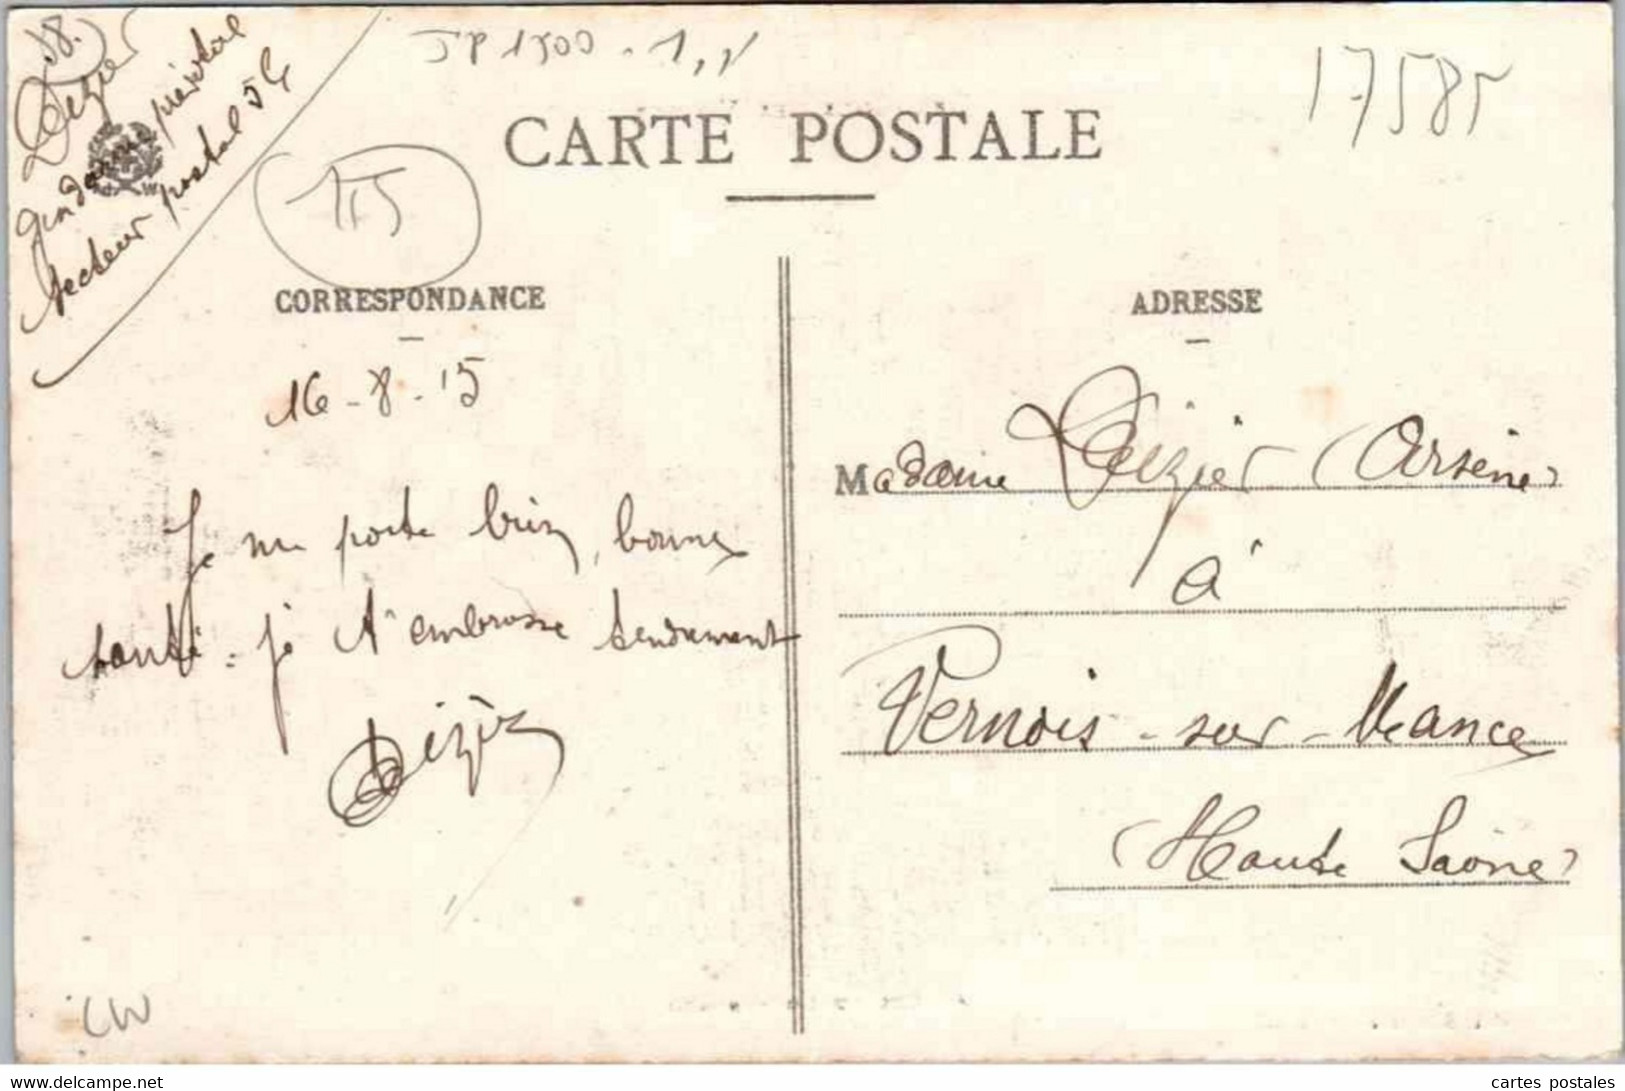 Dézier
gendarme prévôtal
secteur postal 56
17585
CARTE POSTALE
CORRESPONDANCE
ADRESSE
16-8-15
Je me porte bien, bonne
santé. Je t'embrasse tendrement
Madame Dézier (Arsène)
à
Vernois-sur-Mance
(Haute Saône)
CW
www.delcampe.net
cartes postales